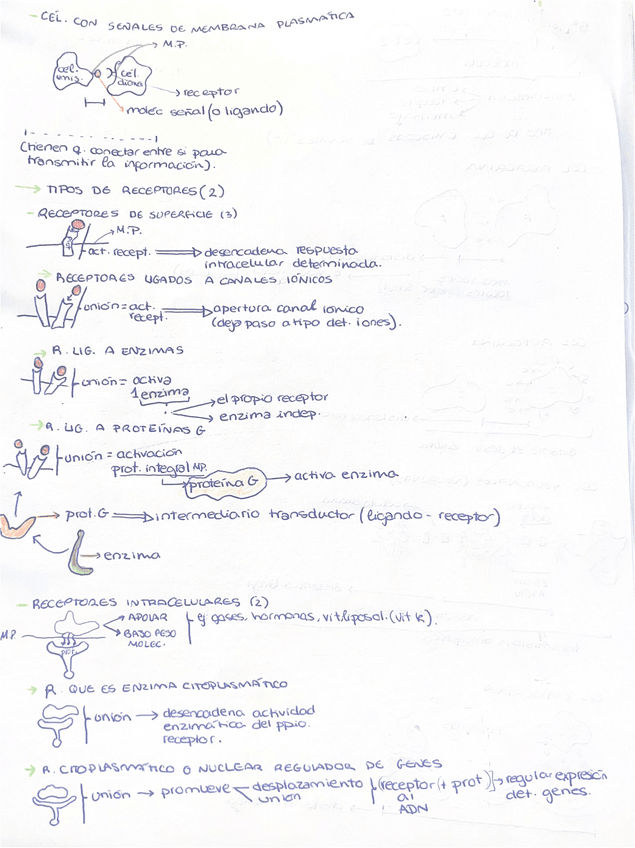 - CÉL. CON SEÑALES DE MEMBRANA PLASMÁTICA
M.P.
cél. emis.
cél. diana
receptor
moléc señal (o ligando)
(tienen q. conectar entre si para
transmitir la información).
→ TIPOS DE RECEPTORES (2)
- RECEPTORES DE SUPERFICIE (3)
M.P.
act. recept. ⇒ desencadena respuesta
intracelular determinada.
→ RECEPTORES LIGADOS A CANALES IÓNICOS
unión = act. recept. ⇒ apertura canal iónico
(deja paso a tipo det. iones).
→ R. LIG. A ENZIMAS
unión = activa
1 enzima
el propio receptor
enzima indep.
→ R. LIG. A PROTEÍNAS G
unión = activación
prot. integral MP.
proteína G → activa enzima
→ prot. G ⇒ intermediario transductor (ligando - receptor)
→ enzima
- RECEPTORES INTRACELULARES (2)
M.P.
APOLAR
BAJO PESO
MOLEC.
ej: gases, hormonas, vit. liposol. (vit K).
prot.
→ R. QUE ES ENZIMA CITOPLASMÁTICO
unión → desencadena actividad
enzimática del ppio.
receptor.
→ R. CITOPLASMÁTICO O NUCLEAR REGULADOR DE GENES
unión → promueve desplazamiento (receptor (+ prot) → regular expresión
unión al det. genes.
ADN